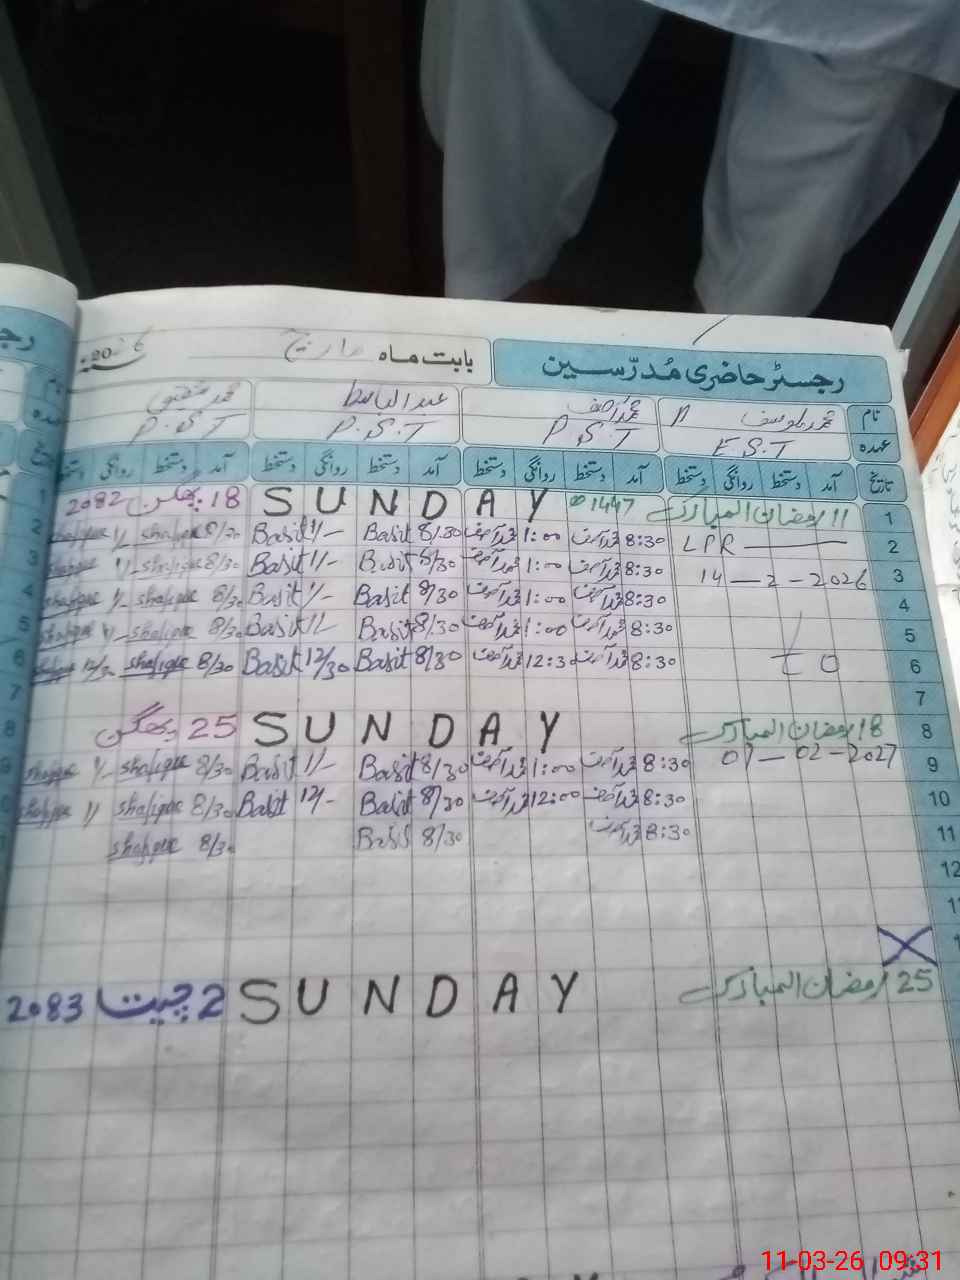 رجسٹر حاضری مُدرّسین بابت ماہ مارچ 2026
نام محمد یوسف محمد آصف عبدالباسط محمد شفیق
عہدہ E.S.T P.S.T P.S.T P.S.T
تاریخ آمد دستخط روانگی دستخط آمد دستخط روانگی دستخط آمد دستخط روانگی دستخط آمد دستخط روانگی
1 11 رمضان المبارک 1447 SUNDAY 18 پھاگن 2082
2 LPR 8:30 محمد آصف 1:00 محمد آصف 8/30 Basit 1/- Basit 8/30 shafique 1/- shafique
3 14-2-2026 8:30 محمد آصف 1:00 محمد آصف 8/30 Basit 1/- Basit 8/30 shafique 1/- shafique
4 8:30 محمد آصف 1:00 محمد آصف 8/30 Basit 1/- Basit 8/30 shafique 1/- shafique
5 8:30 محمد آصف 1:00 محمد آصف 8/30 Basit 1/- Basit 8/30 shafique 1/- shafique
6 to 8:30 محمد آصف 12:30 محمد آصف 8/30 Basit 12/30 Basit 8/30 shafique 12/30 shafique
7
8 18 رمضان المبارک SUNDAY 25 پھگن
9 02-2027 8:30 محمد آصف 1:00 محمد آصف 8/30 Basit 1/- Basit 8/30 shafique 1/- shafique
10 8:30 محمد آصف 12:00 محمد آصف 8/30 Basit 12/- Basit 8/30 shafique 1/ shafique
11 8:30 محمد آصف 8/30 Basit 8/30 shafique
12
25 رمضان المبارک SUNDAY 2 چیت 2083
11-03-26 09:31